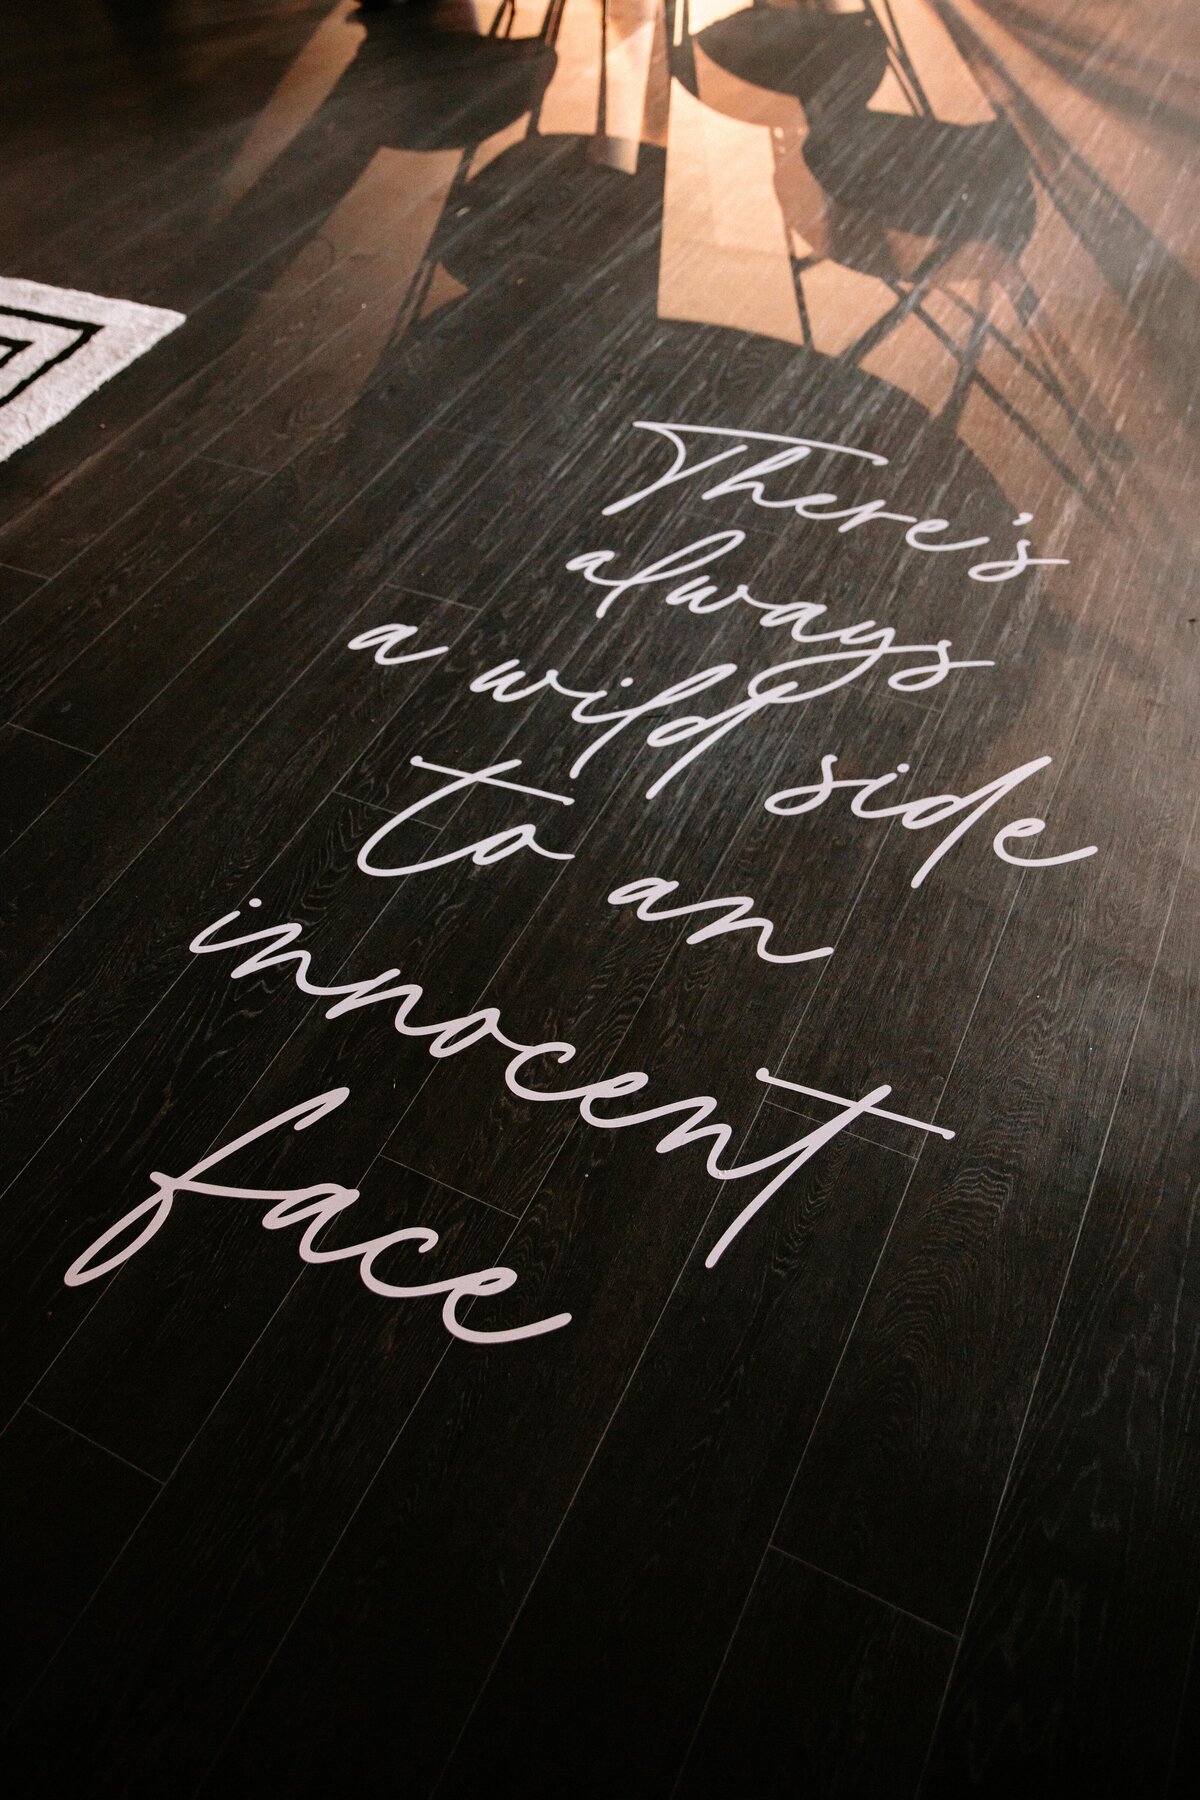 There's
always
a wild side
to an
innocent
face